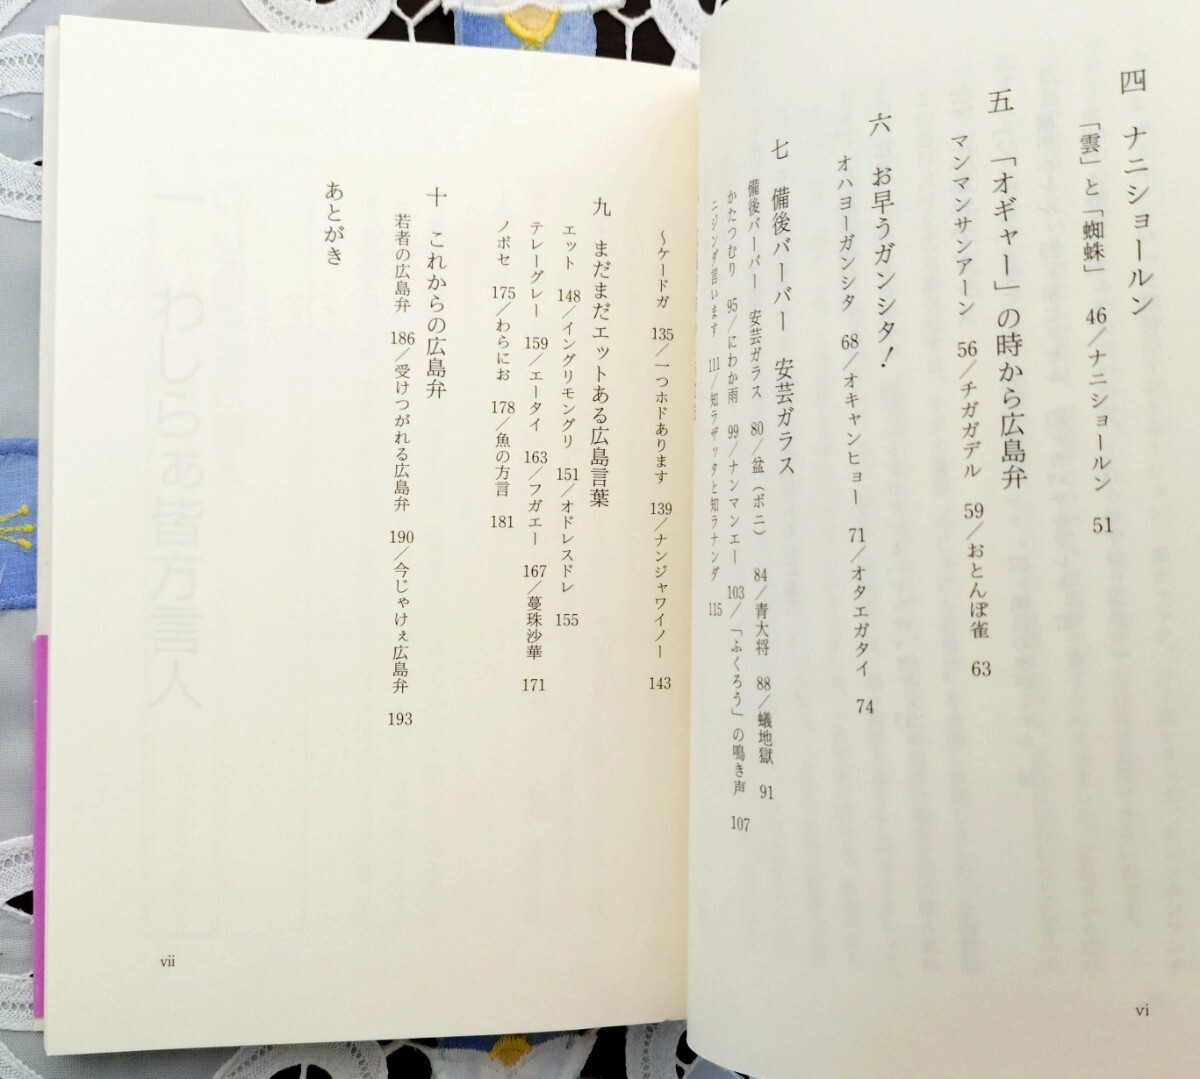 四　ナニショールン
「雲」と「蜘蛛」　46／ナニショールン　51
五　「オギャー」の時から広島弁
マンマンサンアーン　56／チガガデル　59／おとんぼ雀　63
六　お早うガンシタ！
オハヨーガンシタ　68／オキャンヒョー　71／オタエガタイ　74
七　備後バーバー　安芸ガラス
備後バーバー　安芸ガラス　80／盆（ボニ）　84／青大将　88／蟻地獄　91
かたつむり　95／にわか雨　99／ナンマンエー　103／「ふくろう」の鳴き声　107
ニジンダ言います　111／知ラザッタと知ラナンダ　115
vi
～ケードガ　135／一つホドあります　139／ナンジャワイノー　143
九　まだまだエットある広島言葉
エット　148／イングリモングリ　151／オドレスドレ　155
テレーグレー　159／エータイ　163／フガエー　167／蔓珠沙華　171
ノボセ　175／わらにお　178／魚の方言　181
十　これからの広島弁
若者の広島弁　186／受けつがれる広島弁　190／今じゃけぇ広島弁　193
あとがき
vii
一　わしらぁ皆方言人